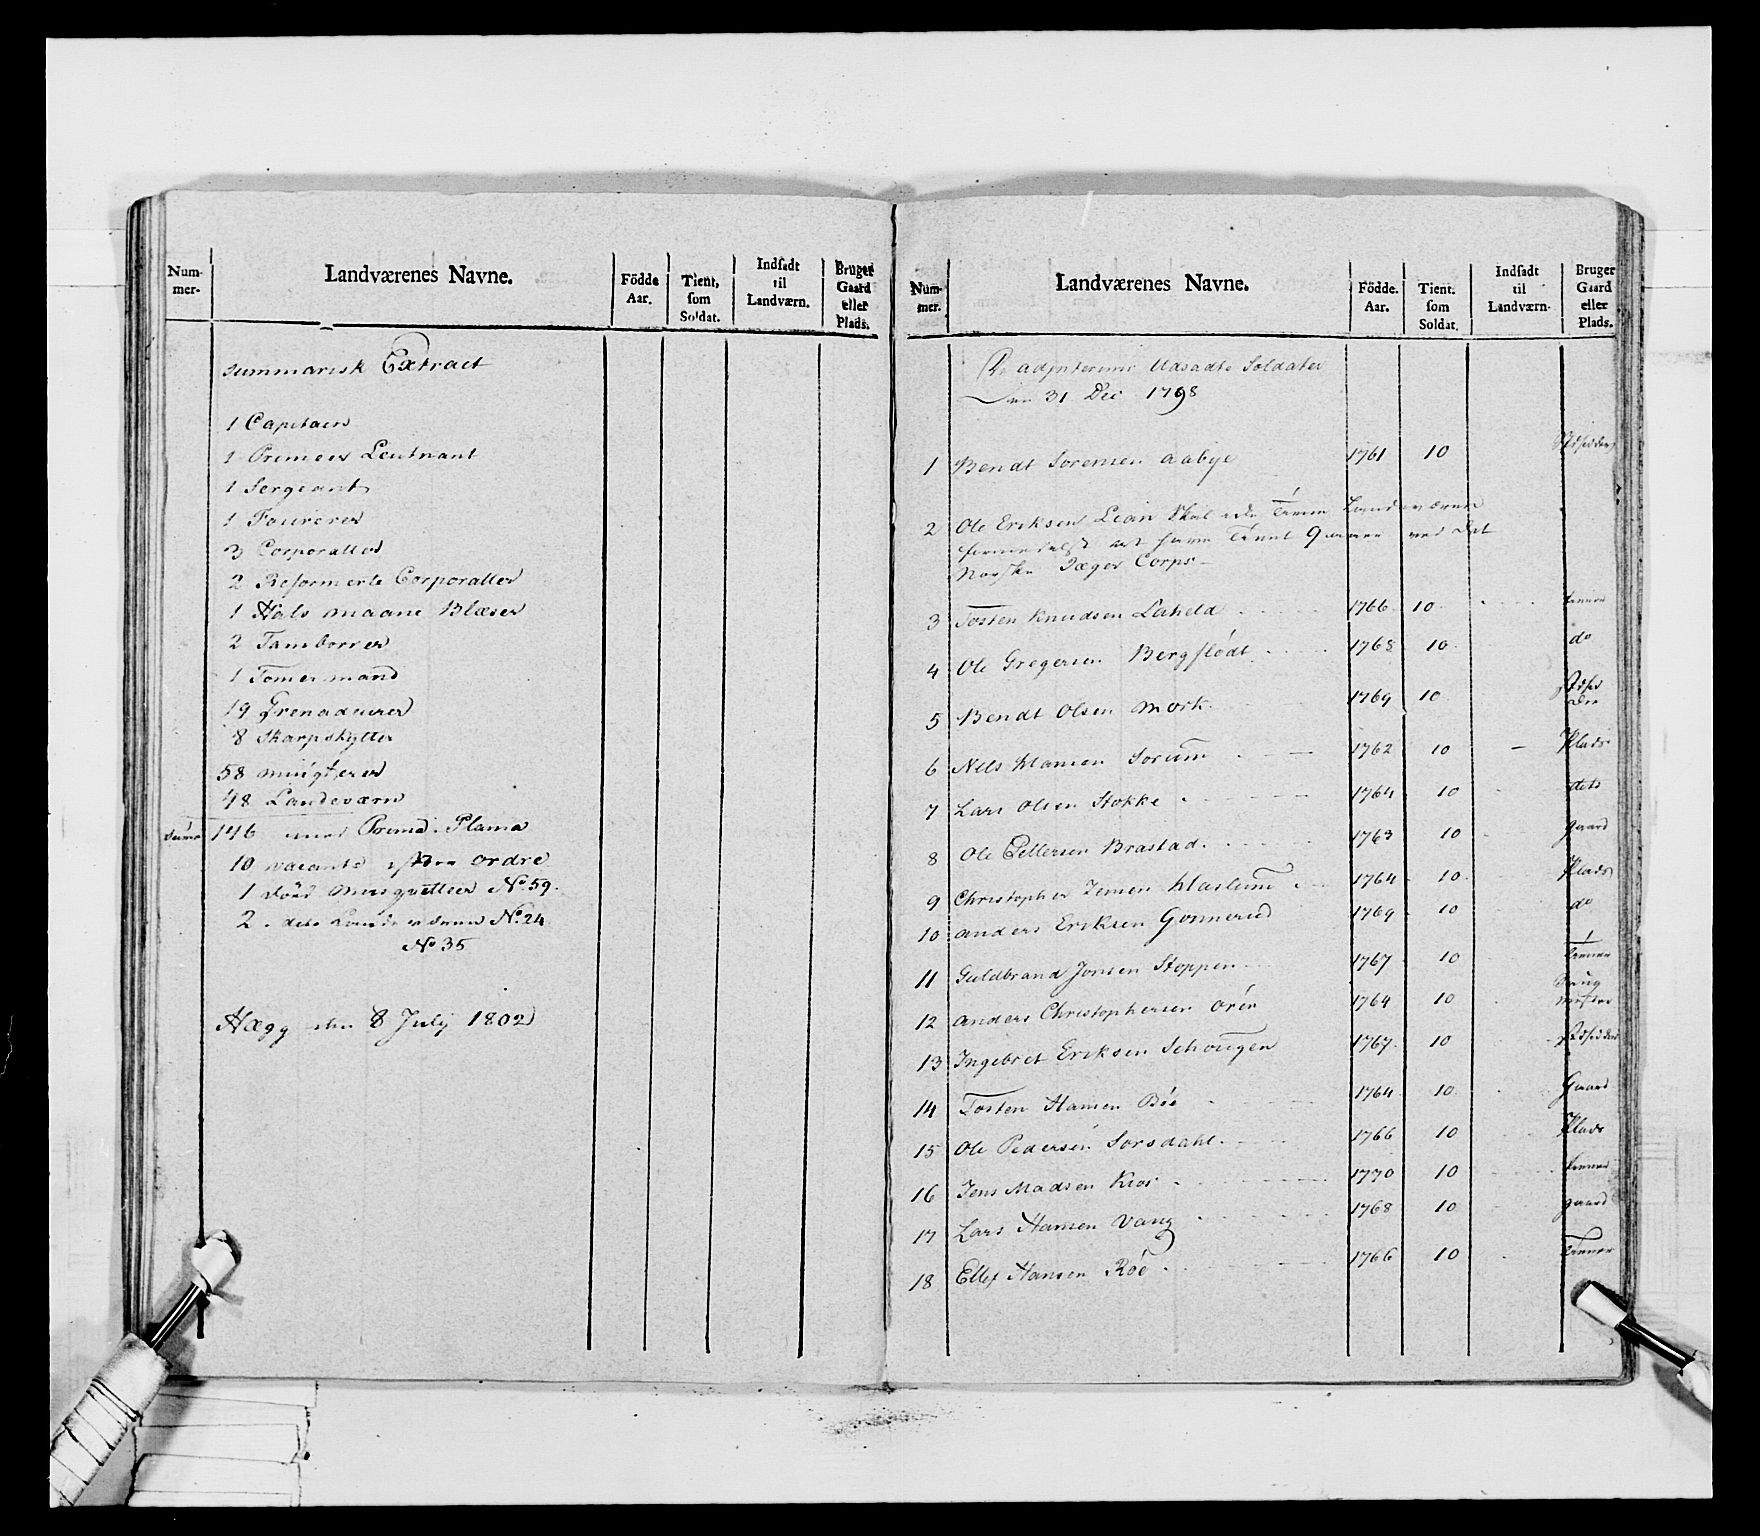 Num-
mer-
Landværenes Navne.
Födde
Aar.
Tient,
som
Soldat.
Indsadt
til
Landværn.
Bruger
Gaard
eller
Plads.
summarisk Extract
1 Capitain
1 Premeer Leutnant
1 Sergeant
1 Fourerer
3 Corporaller
2 Reformerte Corporaller
1 Hals maane Blæser
2 Tambourer
1 Tømermand
19 Grenadeurer
8 Skarpskytter
58 musqterer
48 Landeværn
Suma 146 med Premd. Plama
10 vacante ordre
1 död musquetteer No. 59.
2. dito Landeværne No. 24
No 35
Hægg den 8 July 1802
Num-
mer.
Landværenes Navne.
Födde.
Aar.
Tient.
som
Soldat.
Indsadt
til
Landværn-
Bruger
Gaard
eller
Plads.
De Udsadte Soldater
den 31 Dec 1798
1 Bendt Sorensen Aabye 1761 10
2 Ole Eriksen Lian Skal Tiene Landeværne
formedelst at have Tient 9 aarer ved det
Norske Jæger Corps-
3 Tosten Knudsen Laheld 1766 10 tiener
4 Ole Gregersen Bergflödt 1768 10 do
5 Bendt Olsen Mork 1769 10
6 Nels Hansen Sorum 1762 10 Plads
7 Lars Olsen Stokke 1764 10 dito
8 Ole Pettersen Brastad 1763 10 gaard
9 Christopher Jensen Haslum 1764 10 Plads
10 Anders Eriksen Gonnerud 1769 10 do
11 Guldbrand Jonsen Stoppen 1767 10 tiener
12 Anders Christophersen Oren 1764 10
13 Ingebret Eriksen Schougen 1767 10
14 Tosten Hansen Böe 1764 10 Gaard
15 Ole Pedersen Sorsdahl 1766 10 Plads
16 Jens Madsen Kios 1770 10 tiener
17 Lars Hansen Vang 1768 10 gaard
18 Ellef Hansen Röe 1766 10 tiener